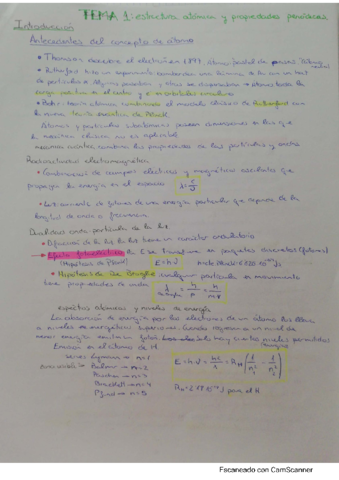 TEMA 1: estructura atómica y propiedades periódicas
Introducción
Antecedentes del concepto de átomo
• Thomson descubre el electrón 1897, átomo
• Rutherford hizo un experimento
de partículas α. Algunas pasaban y otras se dispersaban → átomo toda la
carga positiva en el centro y e⁻ en orbitales circulares
• Bohr: teoría atómica combinando el modelo clásico de Rutherford con
la nueva teoría cuántica de Plank.
Átomos y partículas subatómicas poseen dimensiones en las que
la mecánica clásica no es aplicable
mecánica cuántica combina las propiedades de las partículas y ondas
Radiación electromagnética
• Combinaciones de campos eléctricos y magnéticos oscilantes que
propaga la energía en el espacio λ = c/ν
• La cantidad de fotones de una energía particular que depende de la
longitud de onda o frecuencia.
Dualidad onda partícula de la luz
• Difracción de la luz la luz tiene un carácter ondulatorio
→ Efecto fotoeléctrico la E se transfiere en paquetes discretos (fotones)
(Hipótesis de Plank) E = h·ν
• Hipótesis de De Broglie cualquier partícula en movimiento
tiene propiedades de onda λ = h/p = h/m·v
espectros atómicos y niveles de energía
La absorción de energía por los electrones de un átomo los lleva
a niveles energéticos superiores. Cuando regresan a un nivel de
menor energía emiten fotón. Solo hay ciertos niveles permitidos
Emisión en el átomo de H
series Lyman → n=1
Balmer → n=2
Paschen → n=3
Brackett → n=4
Pfund → n=5
E = h·ν = hc/λ = R_H (1/n₁² − 1/n₂²)
para el H
Escaneado con CamScanner